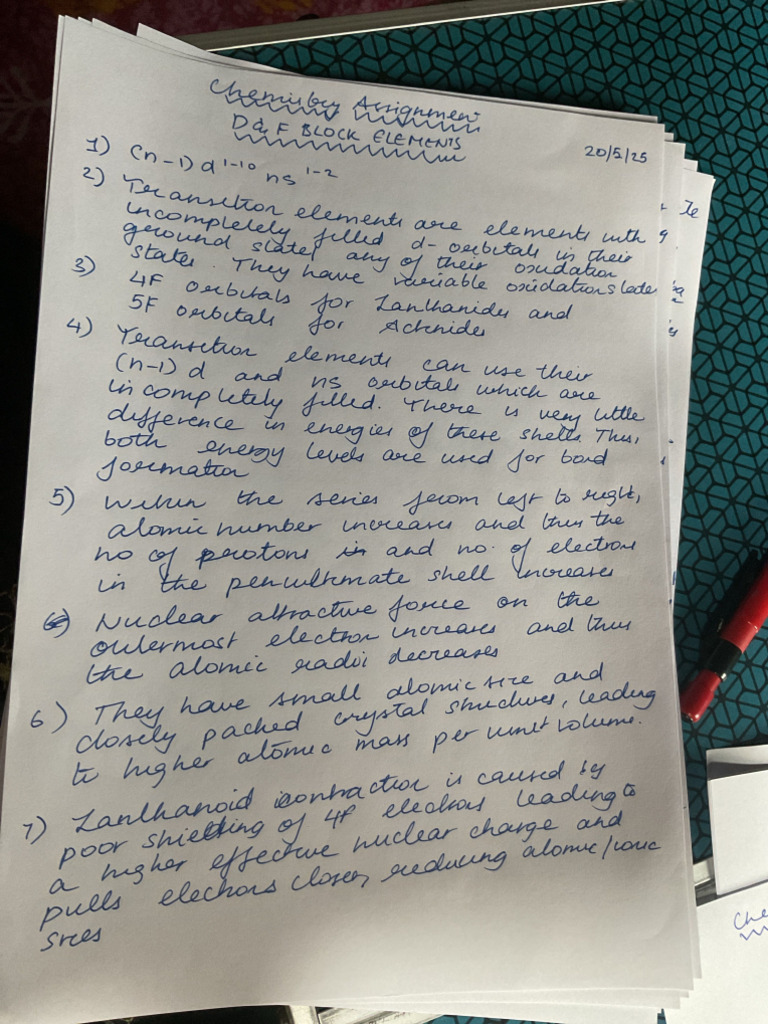 Chemistry Assignment
D & F BLOCK ELEMENTS
20/5/25
1) (n-1) d¹⁻¹⁰ ns¹⁻²
2) Transition elements are elements with
incompletely filled d- orbitals in their
ground state, any of their oxidation
states. They have variable oxidation states
3) 4F orbitals for Lanthanides and
5F orbitals for Actinides
4) Transition elements can use their
(n-1) d and ns orbitals which are
incompletely filled. There is very little
difference in energies of these shells. Thus,
both energy levels are used for bond
formation
5) Within the series from left to right,
atomic number increases and thus the
no of protons in and no. of electrons
in the penultimate shell increases
6) Nuclear attractive force on the
outermost electron increases and thus
the atomic radii decreases
6) They have small atomic size and
closely packed crystal structures, leading
to higher atomic mass per unit volume.
7) Lanthanoid contraction is caused by
poor shielding of 4f electrons leading to
a higher effective nuclear charge and
pulls electrons closer, reducing atomic/ionic
sizes
Te
Che